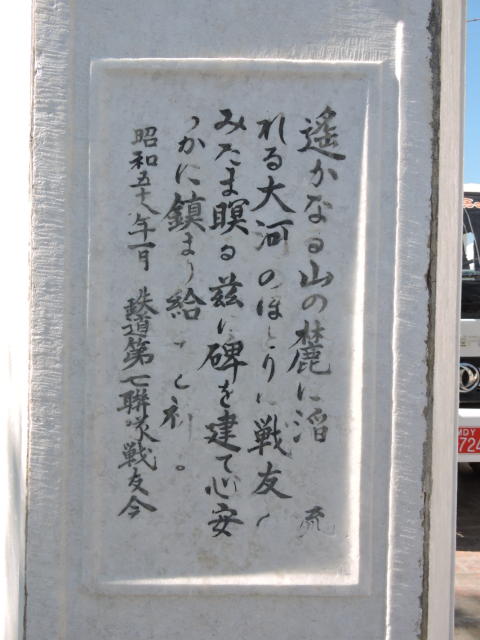 遙かなる山の麓に滔 流
れる大河のほとりに戦友
みたま瞑る茲に碑を建て心安
らかに鎮まり給 と祈 。
昭和五十八年一月 鉄道第七聯隊戦友会
MDY
724